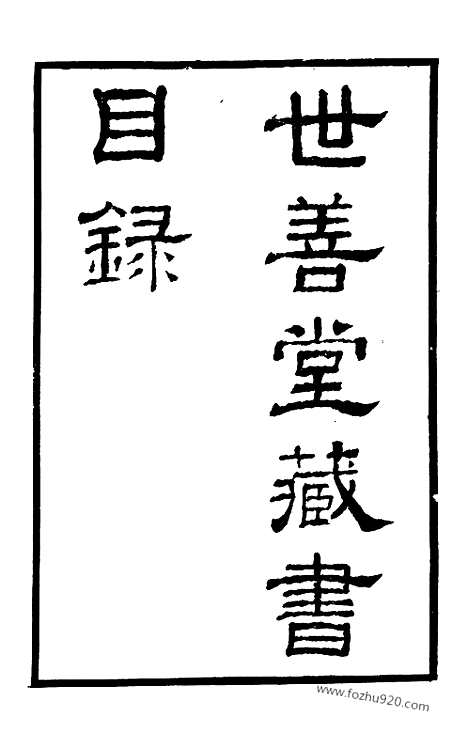 世善堂藏書
目録
www.fozhu920.com